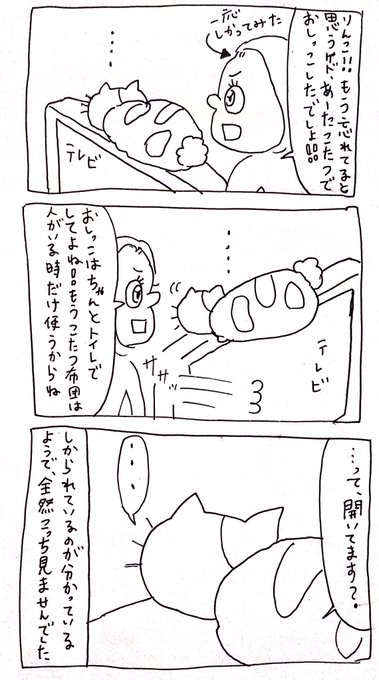 りんこ!!もう忘れてると
思うケド、あーたこたつで
おしっこしたでしょ!!
一応
しかってみた
・・・
テレビ
おしっこはちゃんとトイレで
してよね!!もうこたつ布団は
人がいる時だけ使うからね
・・・
ササッ
テレビ
…って、聞いてます?
・・・
しかられているのが分かっている
ようで、全然こっち見ませんでした